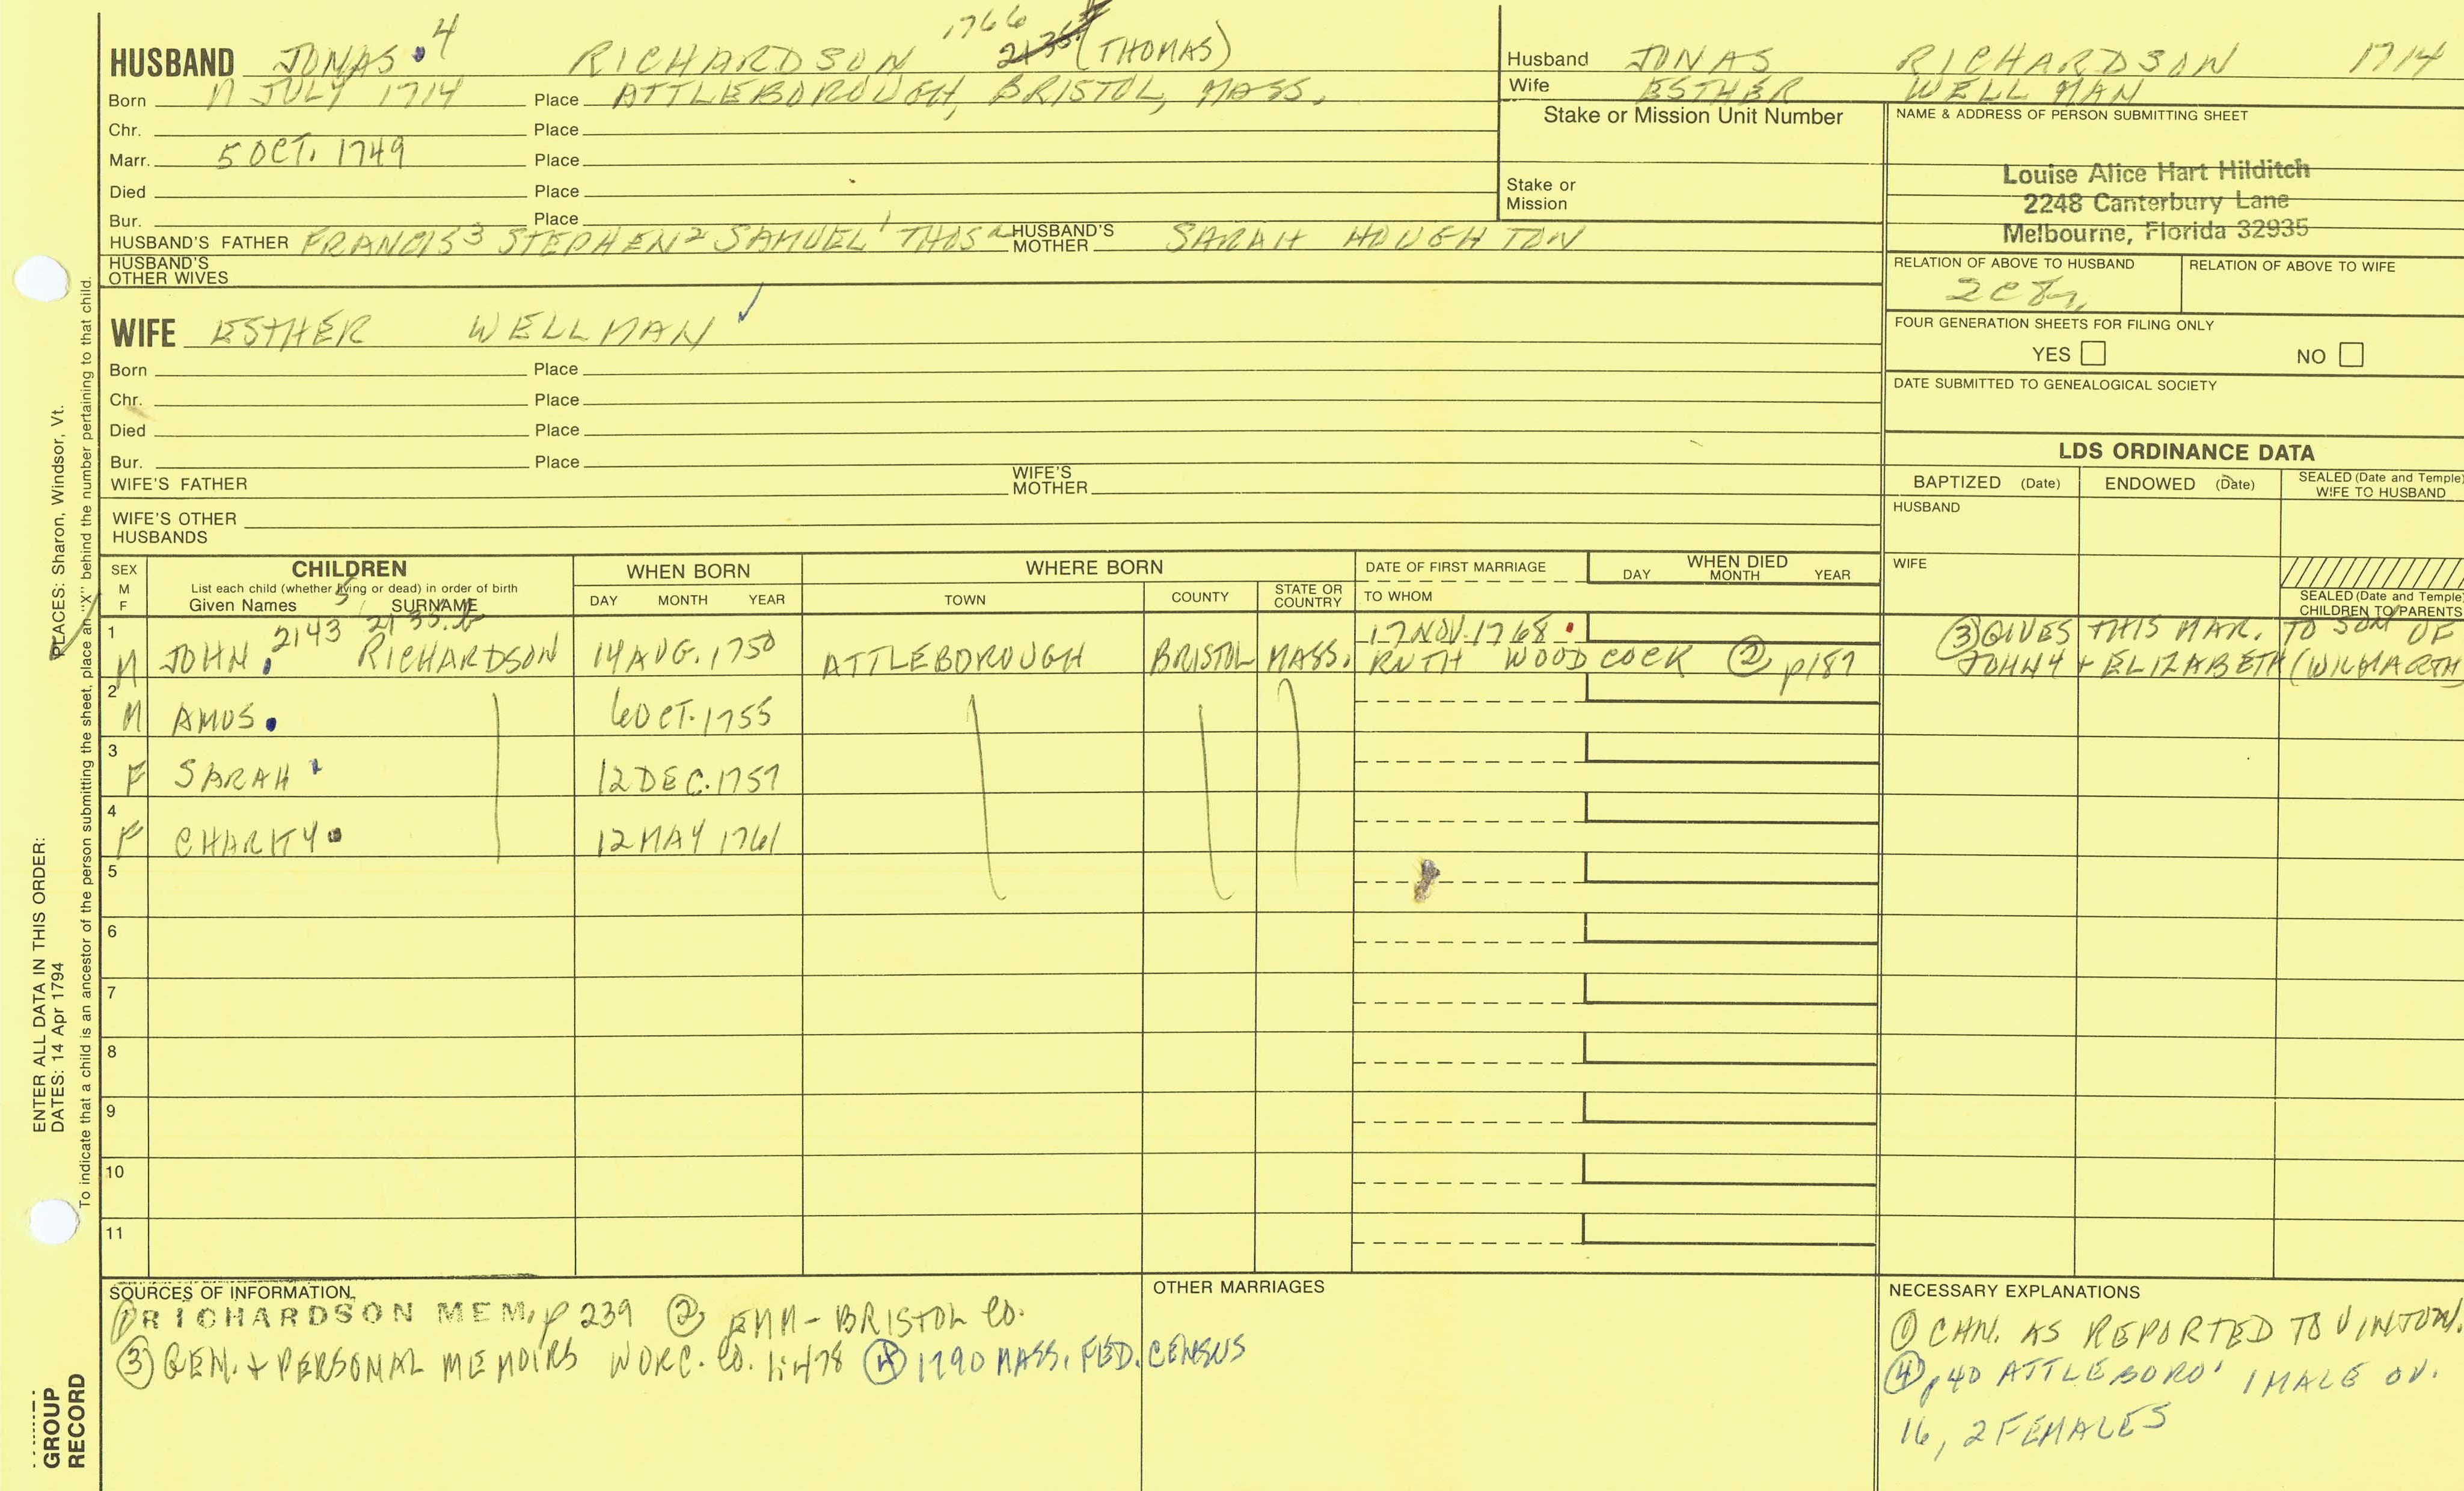 HUSBAND JONAS 4 RICHARDSON 1766 (THOMAS)
Born 17 JULY 1714 Place ATTLEBOROUGH, BRISTOL, MASS.
Chr. Place
Marr. 5 OCT. 1749 Place
Died Place
Bur. Place
HUSBAND'S FATHER FRANCIS3 STEPHEN2 SAMUEL1 THOSA HUSBAND'S MOTHER SARAH HOUGHTON
HUSBAND'S OTHER WIVES
Husband JONAS RICHARDSON 1714
Wife ESTHER WELLMAN
Stake or Mission Unit Number
Stake or Mission
NAME & ADDRESS OF PERSON SUBMITTING SHEET
Louise Alice Hart Hilditch
2248 Canterbury Lane
Melbourne, Florida 32935
RELATION OF ABOVE TO HUSBAND RELATION OF ABOVE TO WIFE
FOUR GENERATION SHEETS FOR FILING ONLY
YES NO
DATE SUBMITTED TO GENEALOGICAL SOCIETY
WIFE ESTHER WELLMAN
Born Place
Chr. Place
Died Place
Bur. Place
WIFE'S FATHER WIFE'S MOTHER
WIFE'S OTHER HUSBANDS
LDS ORDINANCE DATA
BAPTIZED (Date) ENDOWED (Date) SEALED (Date and Temple) WIFE TO HUSBAND
HUSBAND
WIFE
SEALED (Date and Temple) CHILDREN TO PARENTS
SEX M F CHILDREN WHEN BORN WHERE BORN DATE OF FIRST MARRIAGE WHEN DIED
List each child (whether living or dead) in order of birth
Given Names SURNAME DAY MONTH YEAR TOWN COUNTY STATE OR COUNTRY TO WHOM DAY MONTH YEAR
5
2143 17 NOV. 1768
1 M JOHN RICHARDSON 14 AUG. 1750 ATTLEBOROUGH BRISTOL MASS. RUTH WOODCOCK ② p187
③ GIVES THIS MAR. TO SON OF
JOHN4 + ELIZABETH (WILMARTH
2 M AMOS 6 OCT. 1755
3 F SARAH 12 DEC. 1757
4 F CHARITY 12 MAY 1761
5
6
7
8
9
10
11
SOURCES OF INFORMATION
① RICHARDSON MEM, p 239 ② EMM - BRISTOL CO.
③ GEN. + PERSONAL MEMOIRS WORC. CO. 1:478 ④ 1790 MASS. FED. CENSUS
OTHER MARRIAGES
NECESSARY EXPLANATIONS
① CHN. AS REPORTED TO VINTON.
④ p40 ATTLEBORO' 1 MALE OV.
16, 2 FEMALES
ENTER ALL DATA IN THIS ORDER:
DATES: 14 Apr 1794
PLACES: Sharon, Windsor, Vt.
To indicate that a child is an ancestor of the person submitting the sheet, place an "X" behind the number pertaining to that child.
GROUP
RECORD